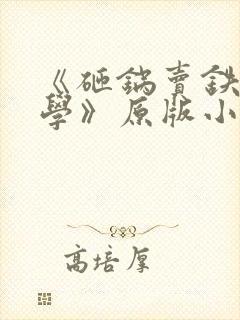 《砸鍋賣鉄
學》原版小
高培厚